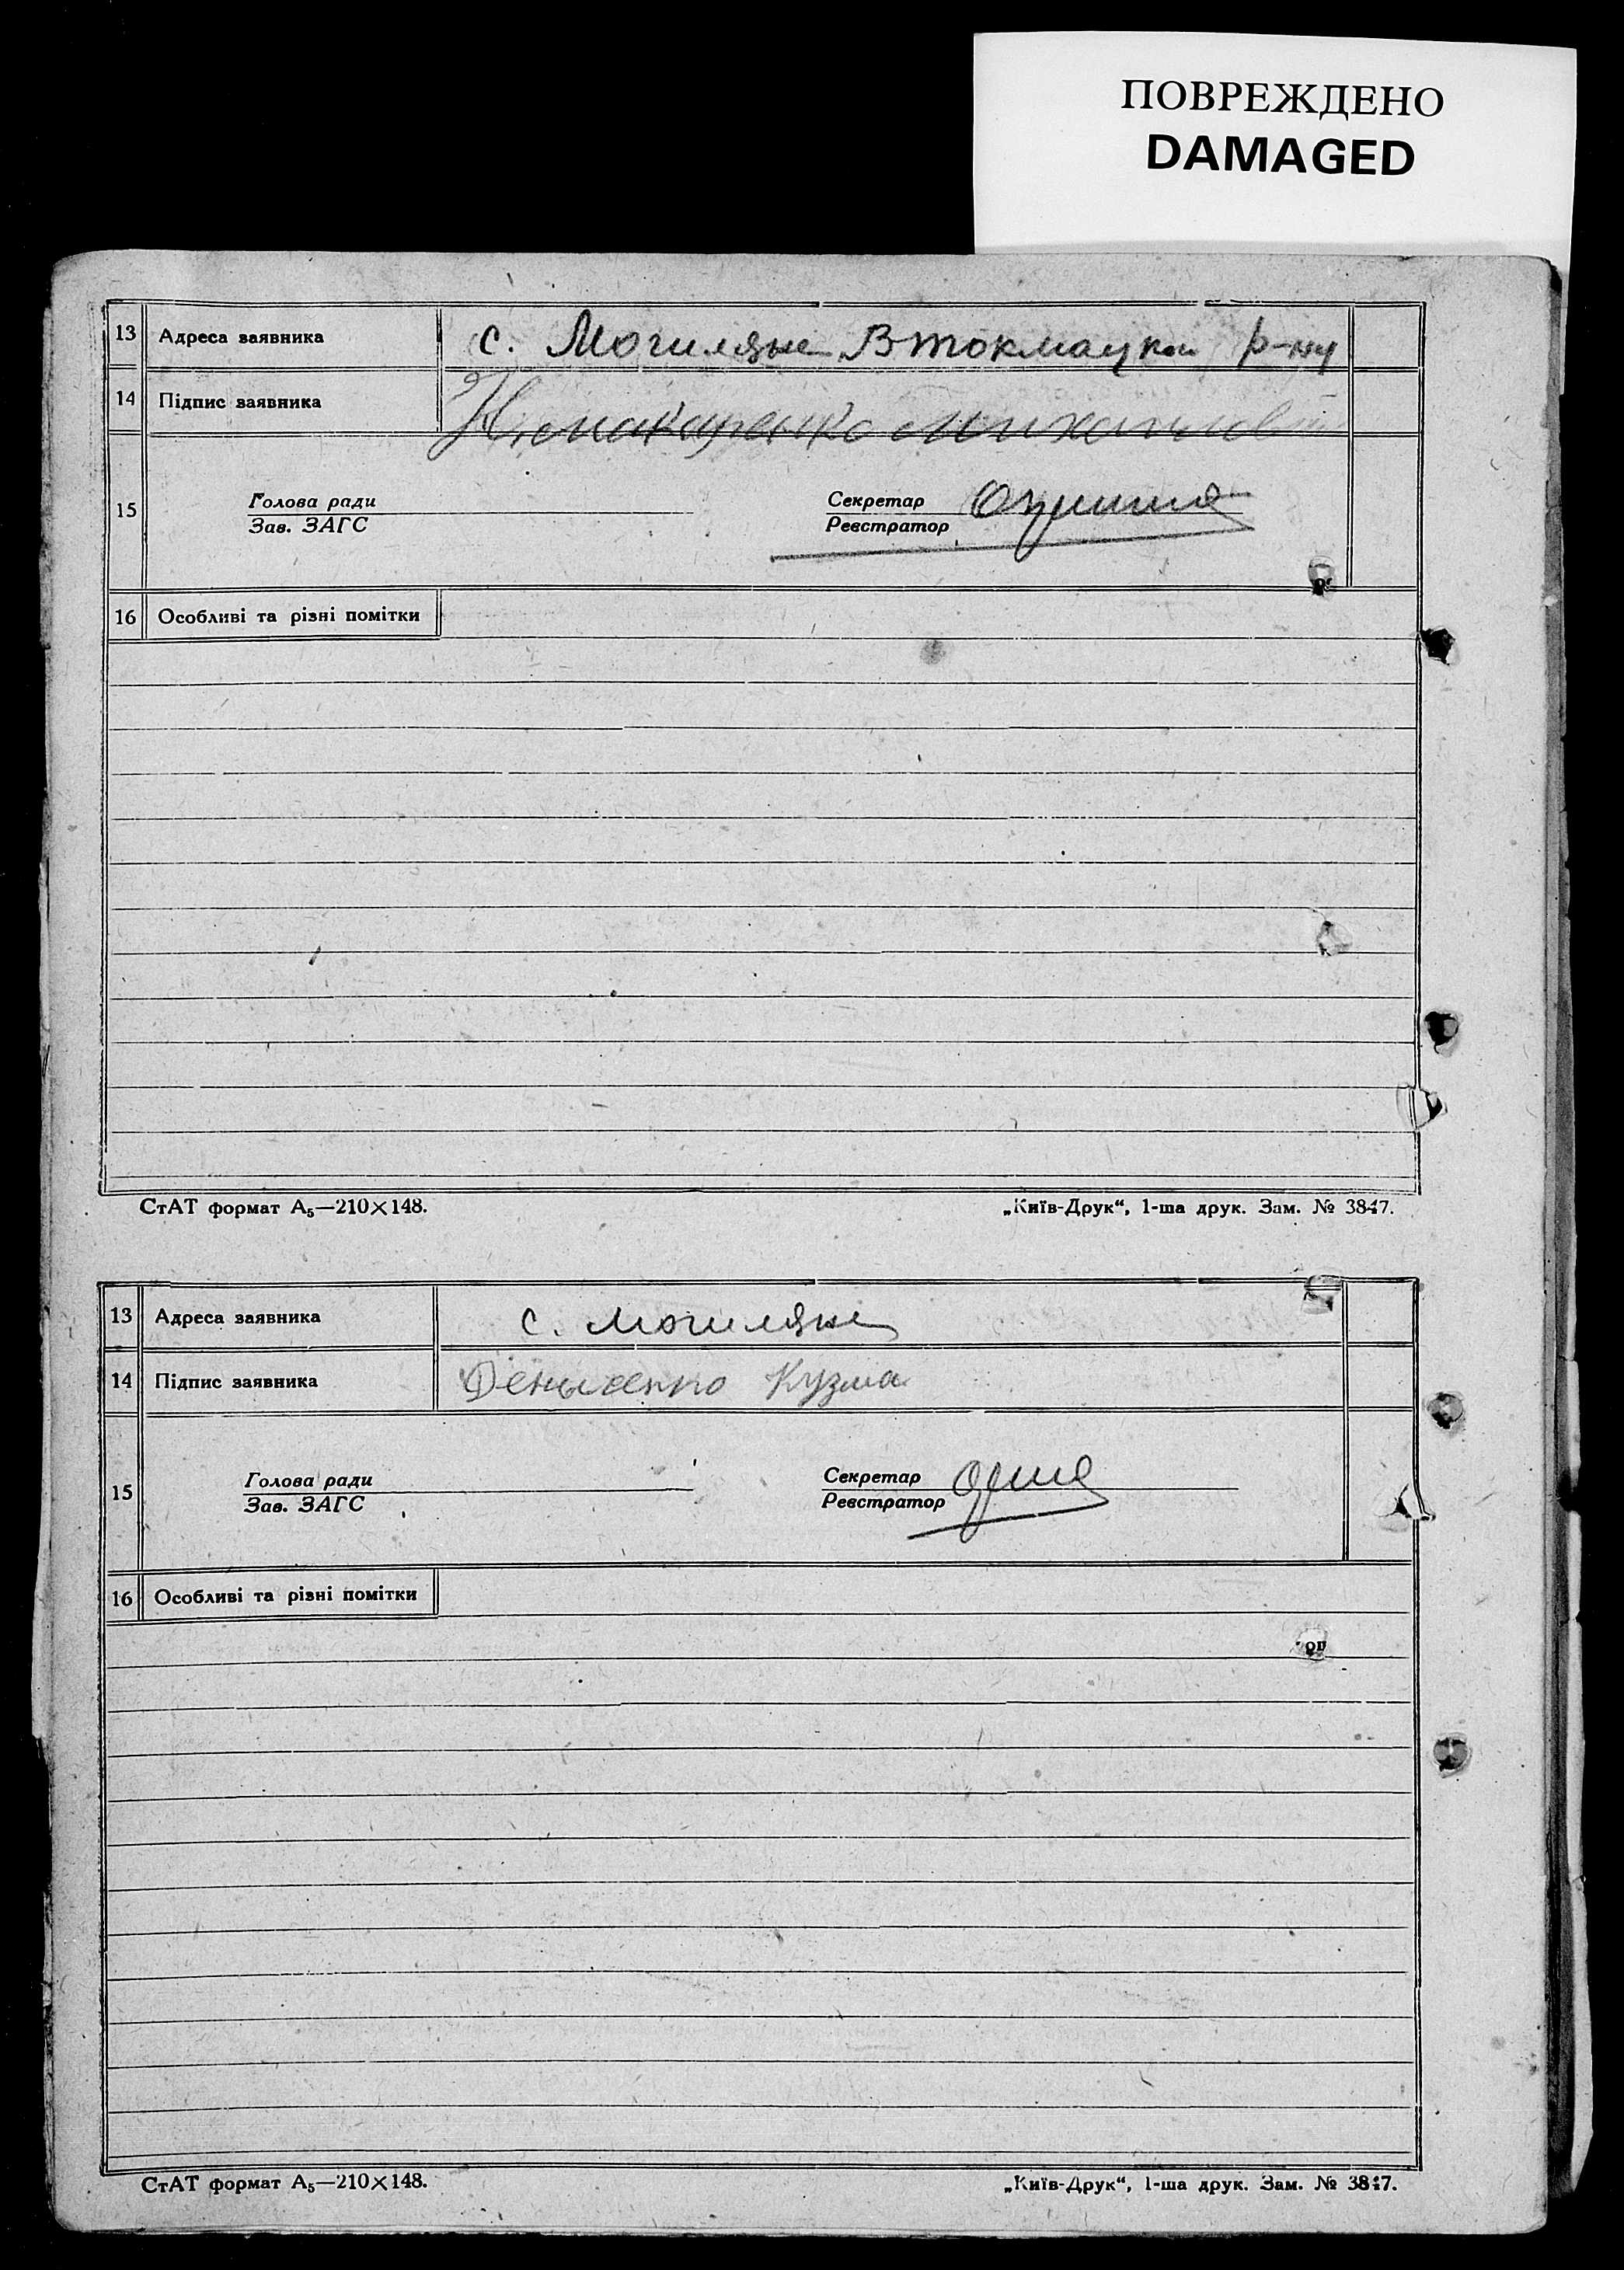 ПОВРЕЖДЕНО
DAMAGED
13 Адреса заявника с. Могиляне Втокмацкого р-ну
14 Підпис заявника Макаренко
Голова ради Секретар
15
Зав. ЗАГС Реєстратор
16 Особливі та різні помітки
СтАТ формат А₅—210×148. „Київ-Друк“, 1-ша друк. Зам. № 3847.
13 Адреса заявника с. Могиляне
14 Підпис заявника Денысенко Кузма
Голова ради Секретар
15
Зав. ЗАГС Реєстратор
16 Особливі та різні помітки
СтАТ формат А₅—210×148. „Київ-Друк“, 1-ша друк. Зам. № 3847.